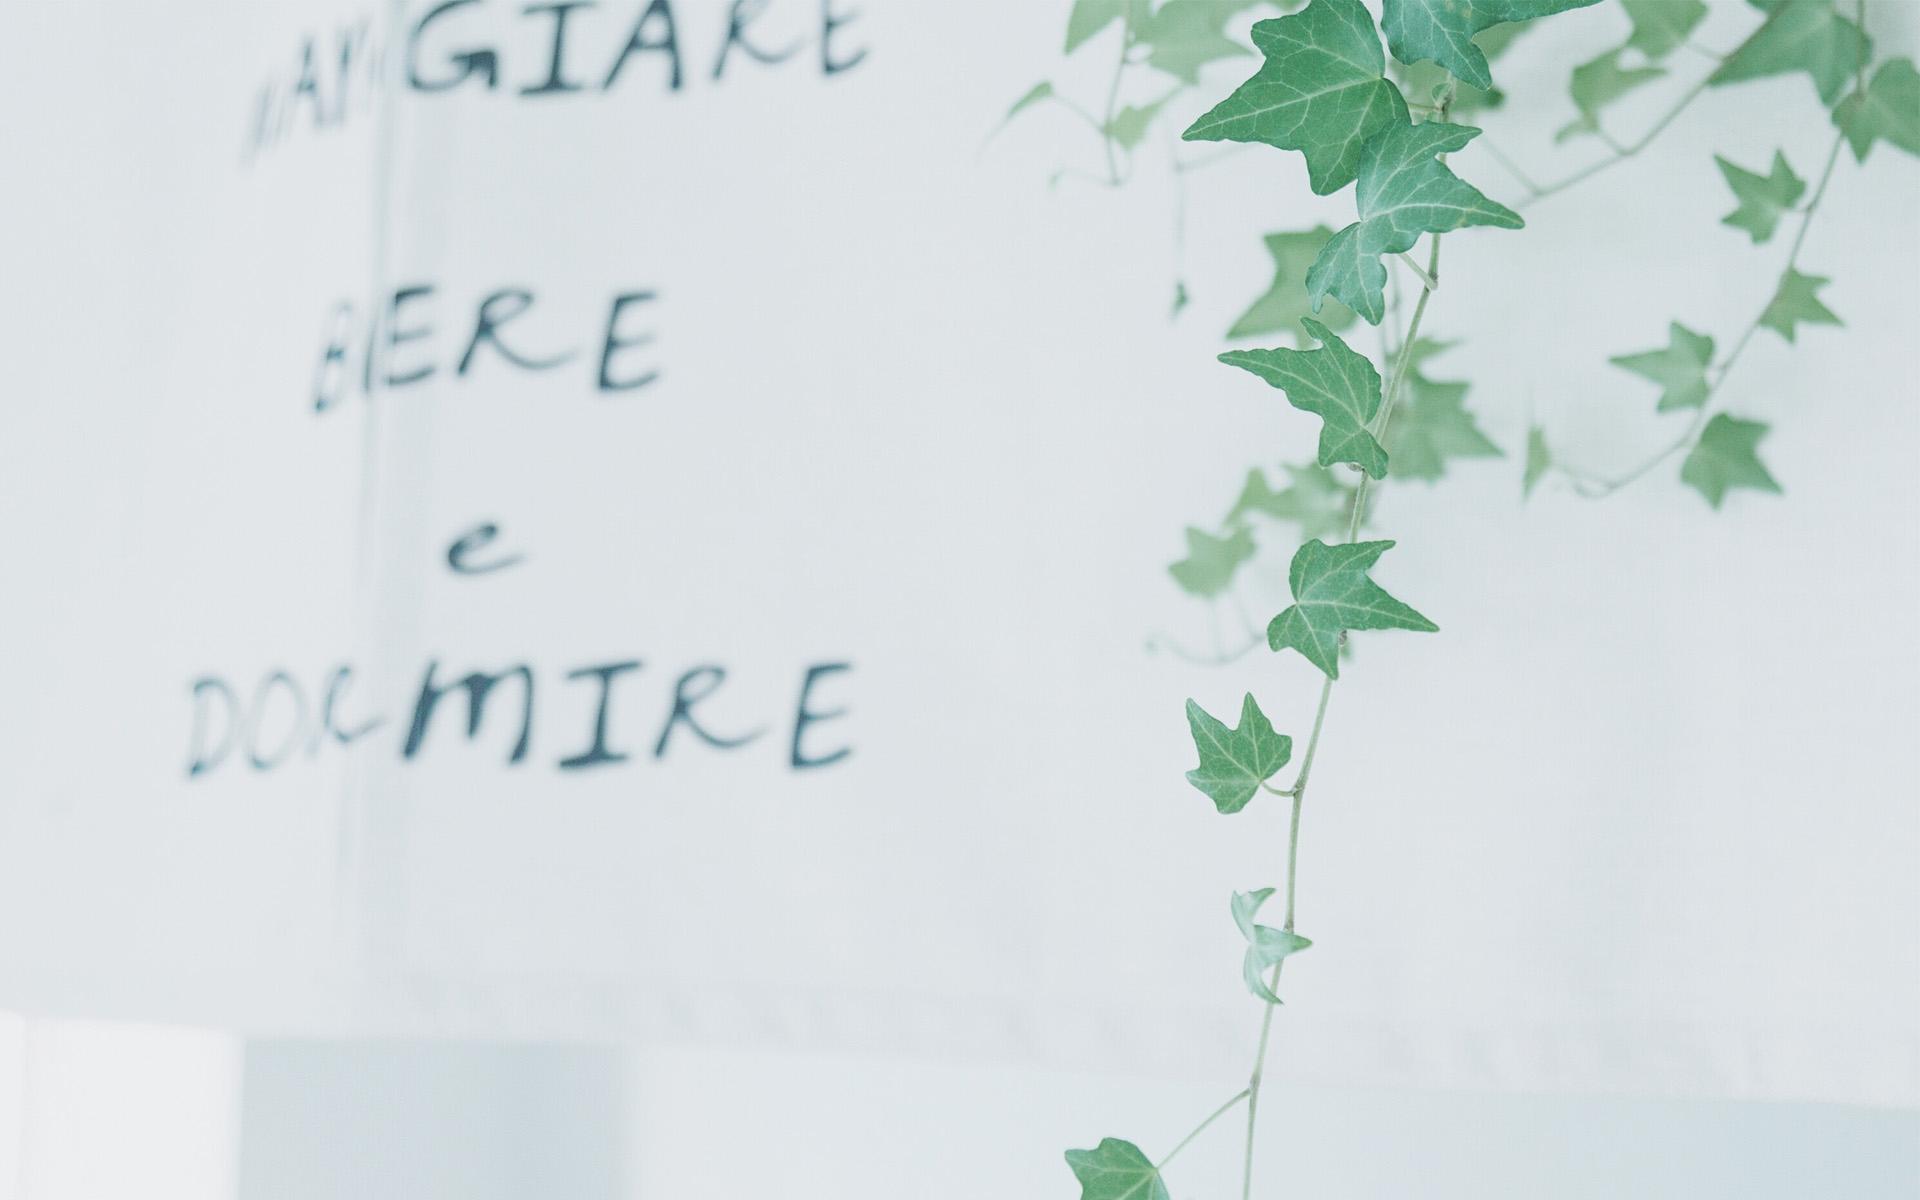 MANGIARE
BERE
e
DORMIRE